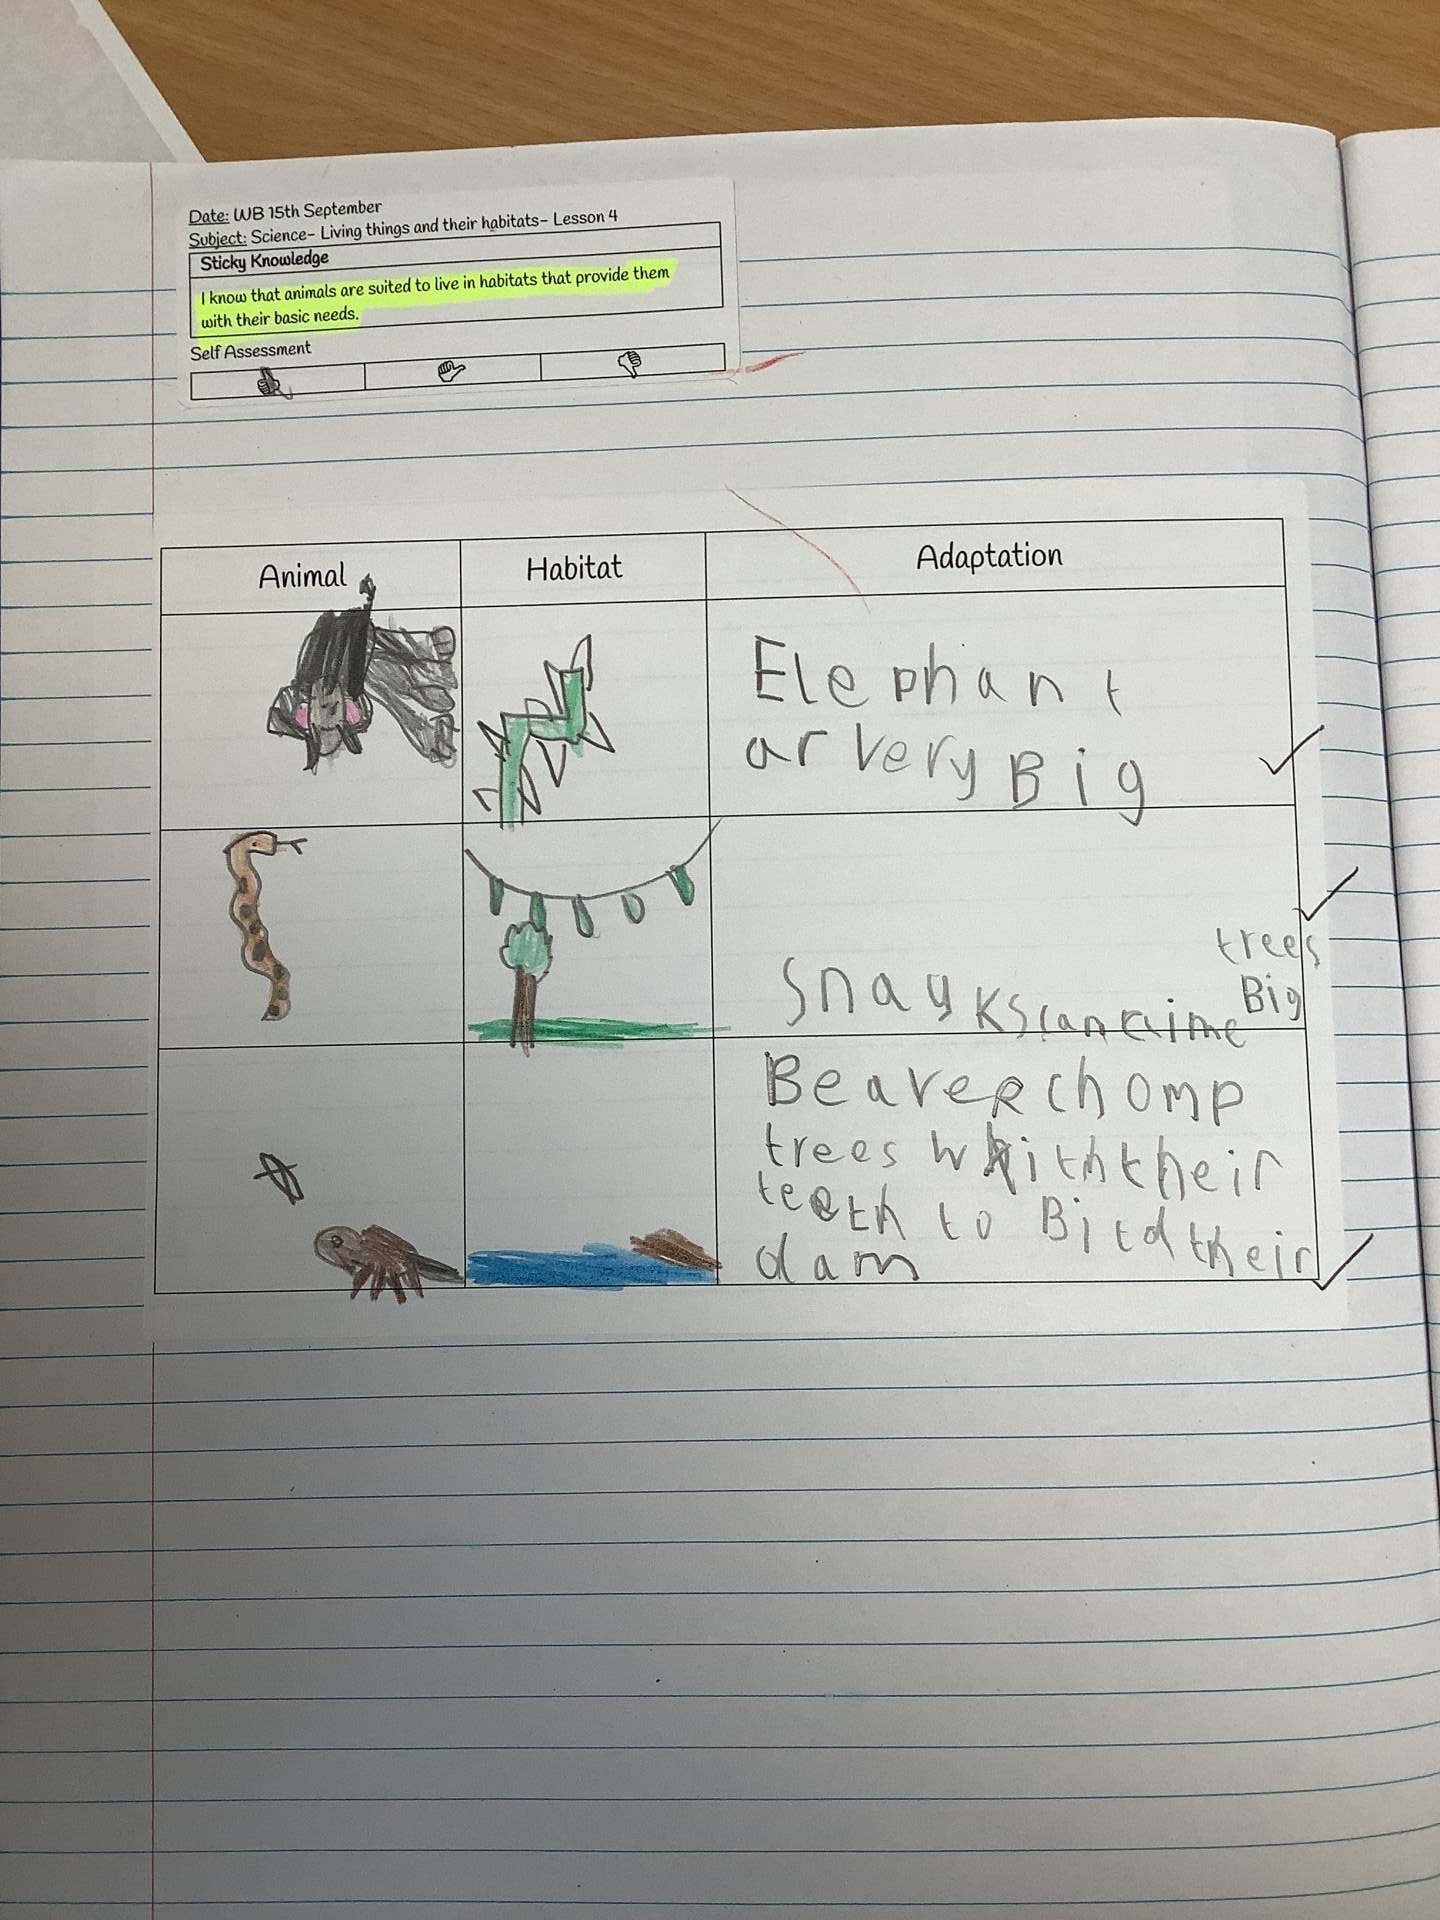 Date: WB 15th September
Subject: Science- Living things and their habitats- Lesson 4
Sticky Knowledge
I know that animals are suited to live in habitats that provide them
with their basic needs.
Self Assessment
Animal Habitat Adaptation
Elephant
ar very Big
trees
Big
Snayks can claime
Beaver chomp
trees whith their
teeth to Bitd their
dam